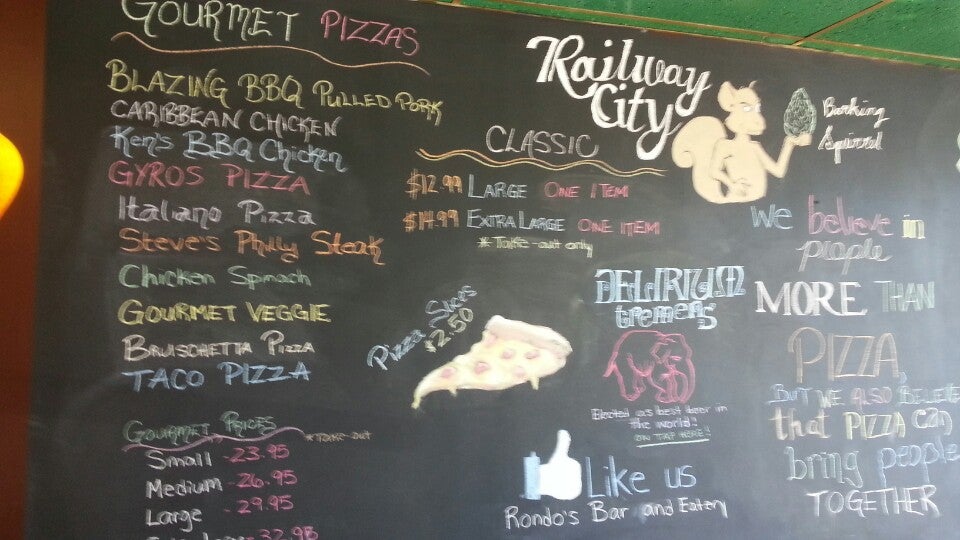 GOURMET PIZZAS
BLAZING BBQ PULLED PORK
CARIBBEAN CHICKEN
Ken's BBQ Chicken
GYROS PIZZA
Italiano Pizza
Steve's Philly Steak
Chicken Spinach
GOURMET VEGGIE
BRUSCHETTA PIZZA
TACO PIZZA
GOURMET PRICES *TAKE-OUT
Small - 23.95
Medium - 26.95
Large - 29.95
32.95
CLASSIC
$12.99 LARGE ONE ITEM
$14.99 EXTRA LARGE ONE ITEM
*Take-out only
Pizza Slices
$2.50
Railway
City
Barking
Squirrel
DELIRIUM
tremens
Elected as best beer in
the world!
ON TAP HERE!
Like us
Rondo's Bar and Eatery
We believe in
people
MORE THAN
PIZZA,
BUT WE ALSO BELIEVE
that PIZZA can
bring people
TOGETHER